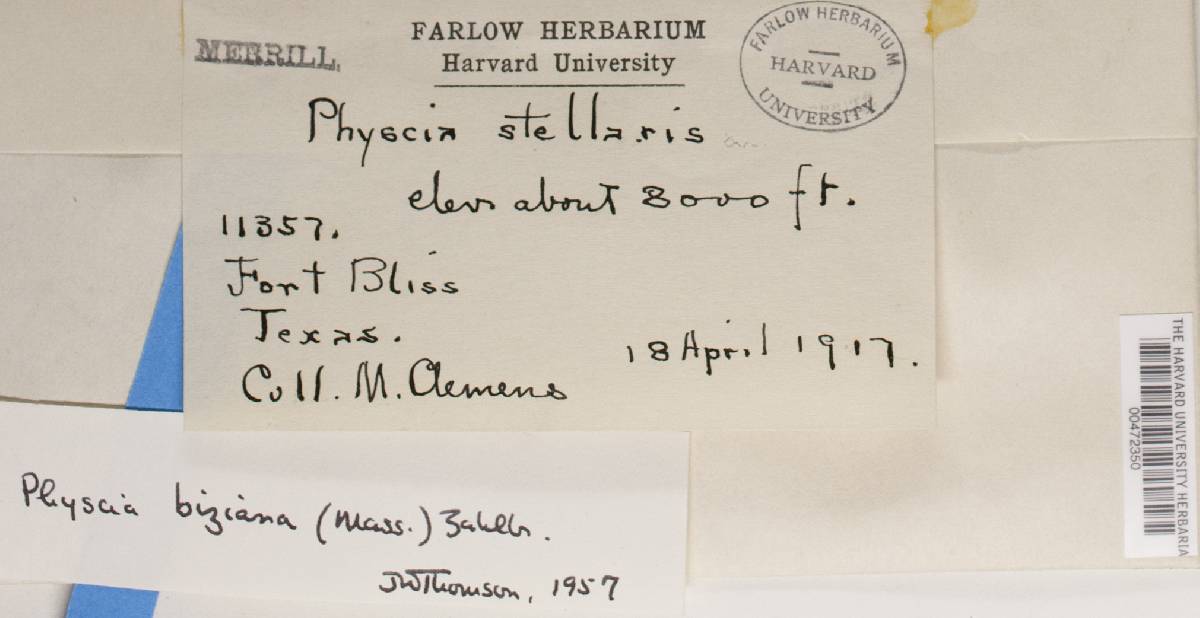 MERRILL.
FARLOW HERBARIUM
Harvard University
FARLOW HERBARIUM
HARVARD
UNIVERSITY
Physcia stellaris
elev. about 8000 ft.
11357.
Fort Bliss
Texas.
18 April 1917.
Coll. M. Clemens
Physcia biziana (Mass.) Zahlbr.
JWThomson, 1957
THE HARVARD UNIVERSITY HERBARIA
00472350